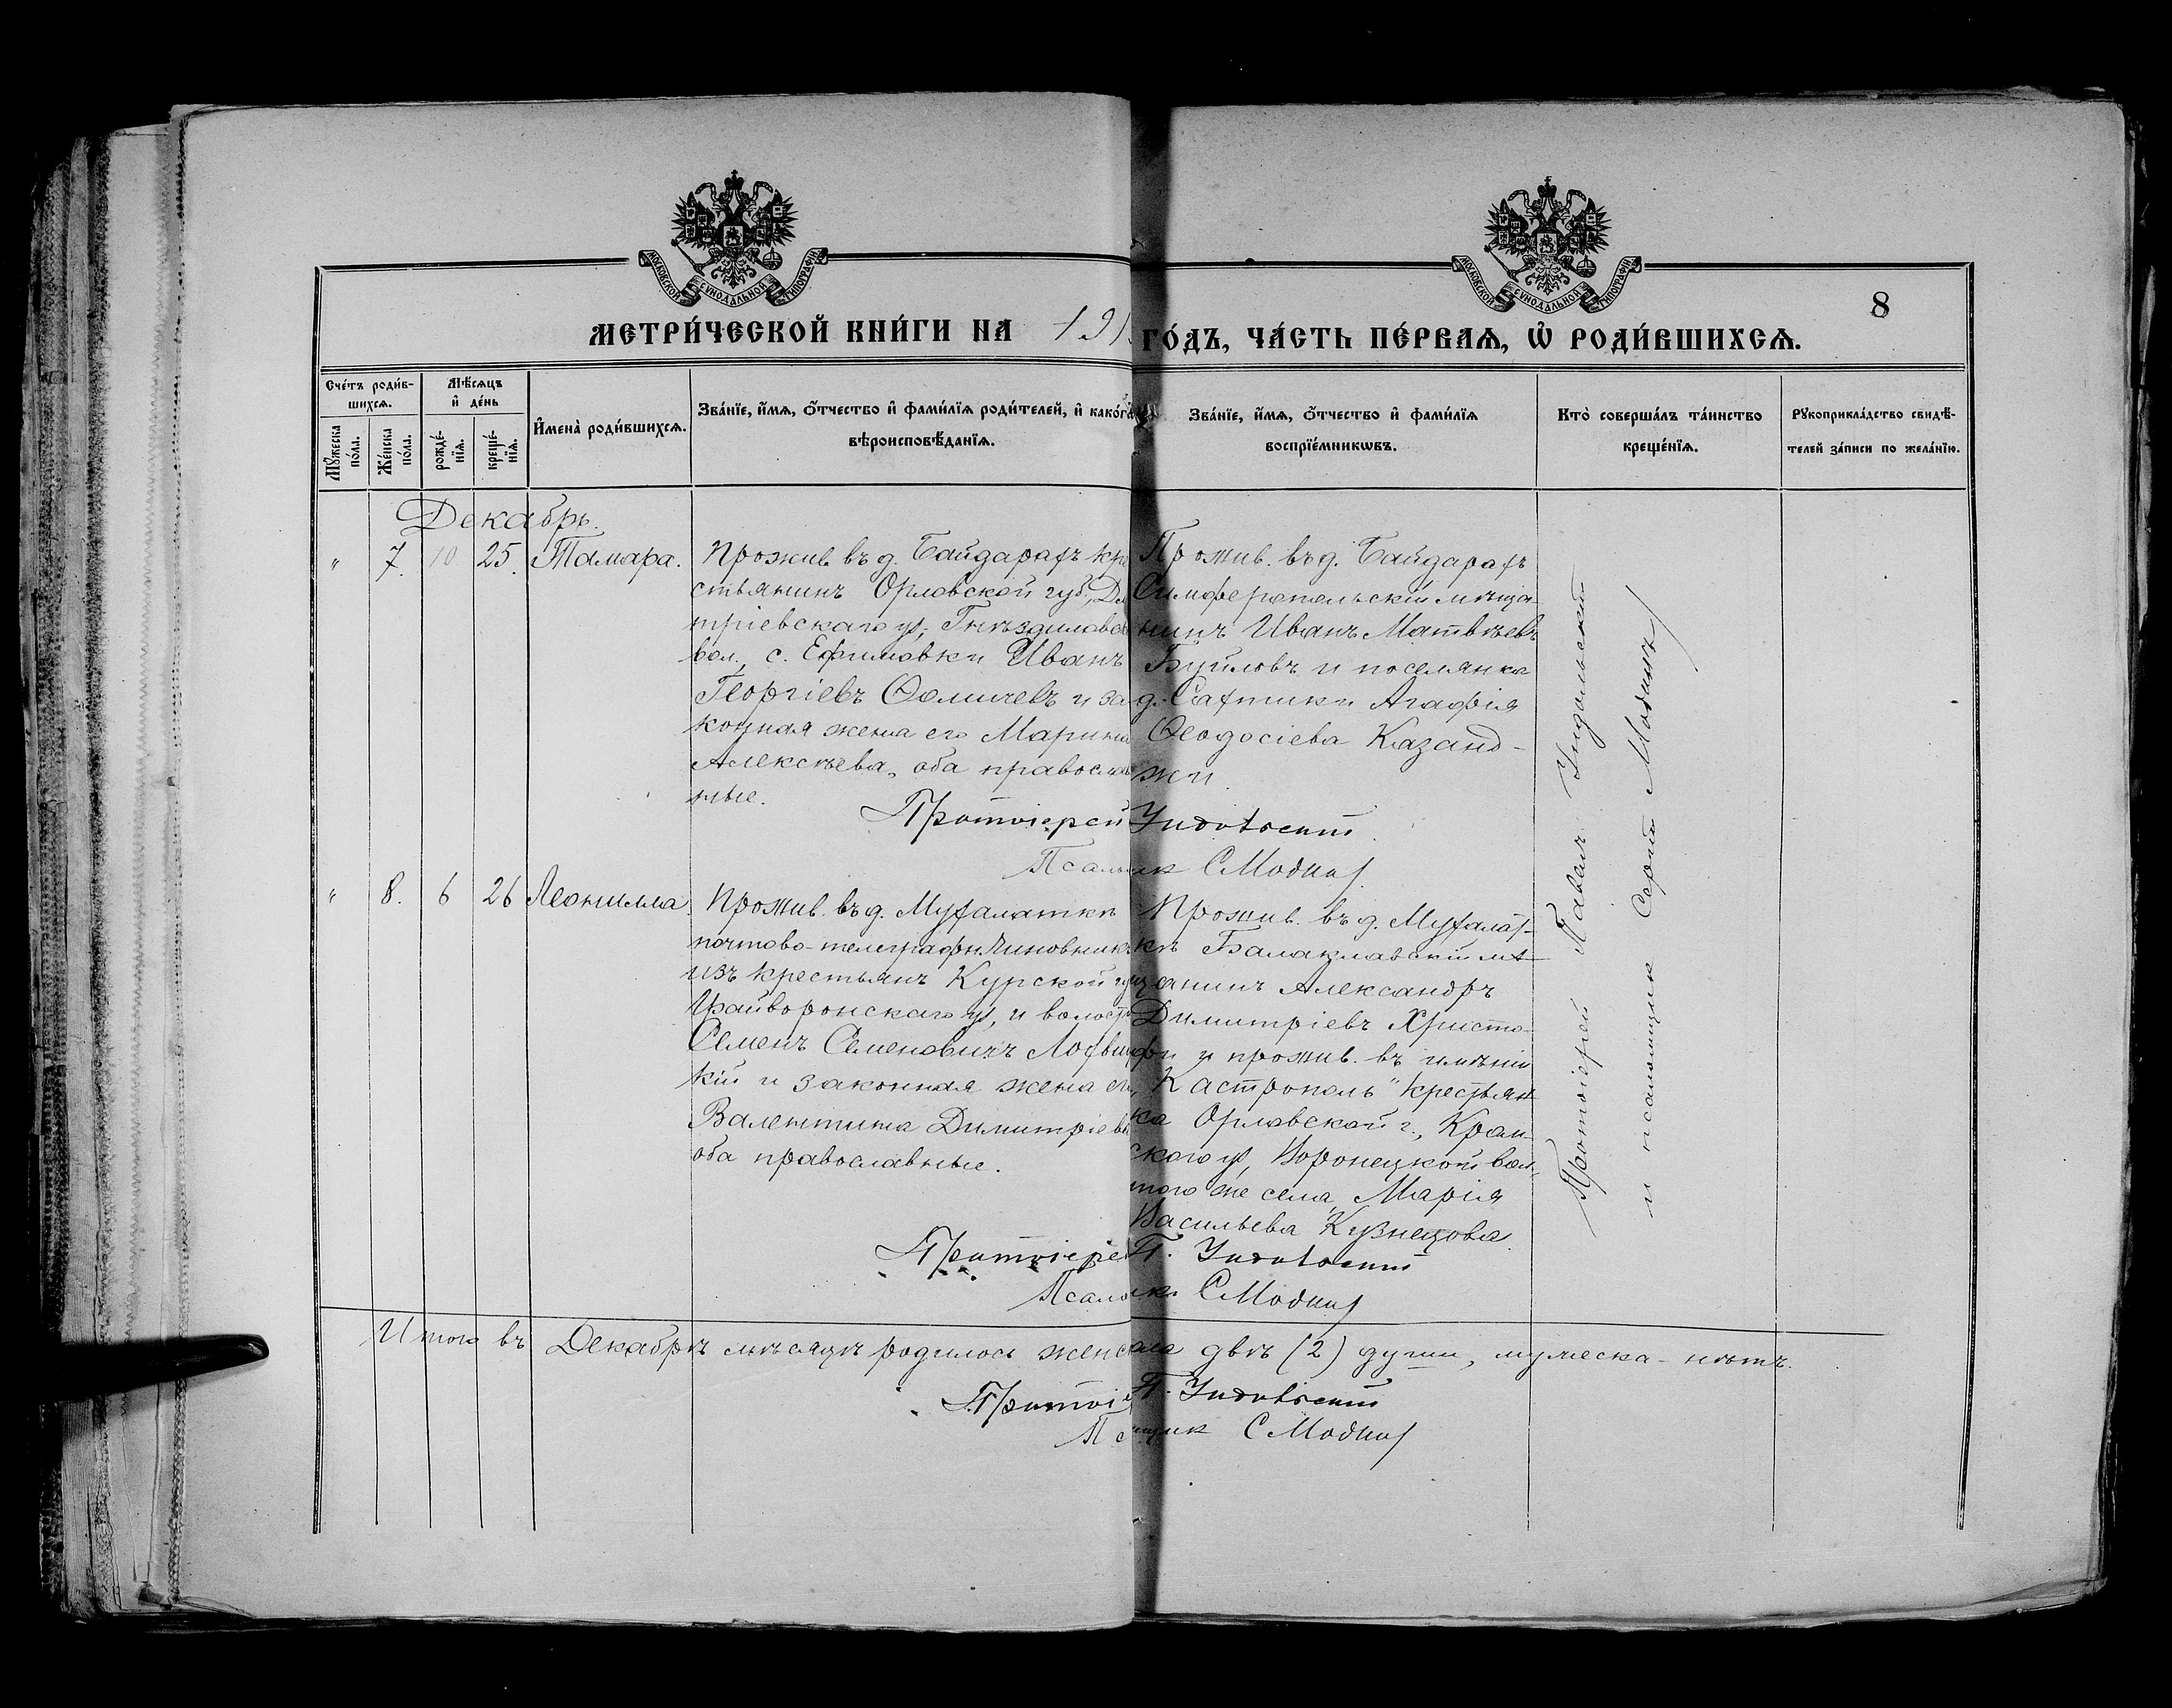 МОСКОВСКОЙ СѴНОДАЛЬНОЙ ТИПОГРАФІИ
МОСКОВСКОЙ СѴНОДАЛЬНОЙ ТИПОГРАФІИ
8
МЕТРИ́ЧЕСКОЙ КНИ́ГИ НА 191
ГО́ДЪ, ЧА́СТЬ ПЕ́РВАѦ, Ѽ РОДИ́ВШИХСѦ.
Сче́тъ роди́в-
шихсѧ.
Мꙋ́жеска по́ла.
Же́нска по́ла.
Мѣ́сѧцъ
и҆ де́нь
рожде́-
нїѧ.
креще́-
нїѧ.
И҆мена̀ роди́вшихсѧ.
Зва́нїе, и҆́мѧ, ѻ҆́тчество и҆ фами́лїѧ роди́телей, и҆ како́гѡ
вѣроисповѣ́данїѧ.
Зва́нїе, и҆́мѧ, ѻ҆́тчество и҆ фами́лїѧ
воспрїе́мникѡвъ.
Кто̀ соверша́лъ та́инство
креще́нїѧ.
Рꙋкоприкла́дство свидѣ́-
телей за́писи по жела́нїю.
Декабрь.
" 7. 10 25. Тамара.
Прожив. въ д. Байдарахъ кре
стьянинъ Орловской губ., Ди
тріевскаго у., Гнѣздиловск
вол., с. Ефимовки Иванъ
Георгіевъ Ѳомичевъ и за
конная жена его Марина
Алексѣева, оба православ
ные.
Прожив. въ д. Байдарахъ
Симферопольскій мѣща-
нинъ Иванъ Матвѣевъ
Буйловъ и поселянка
д. Сахтики Агафія
Ѳеодосіева Казанд-
жи.
Протоіерей Индольскій.
Псаломщик С Модин
" 8. 6 26 Леонилла.
Прожив. въ д. Мухалаткѣ
почтово-телеграфн. чиновникъ
изъ крестьянъ Курской гу
Грайворонскаго у., и волост
Семенъ Семеновичъ Лохвиц
кій и законная жена его
Валентина Димитріева
оба православные.
Прожив. въ д. Мухалат-
кѣ Балаклавскій мѣ-
щанинъ Александръ
Димитріевъ Христо-
фи и прожив. въ имѣніи
„Кастрополь" крестьян-
ка Орловской г., Кром-
скаго у., Воронецкой вол.,
того же села, Марія
Васильева Кузнецова.
Протоіерей П. Индольскій
Псаломщик С Модин
Протоіерей Павелъ Индольскій
и псаломщик Сергѣй Модинъ
Итого въ Декабрѣ мѣсяцѣ родилось женска двѣ (2) души, мужеска - нѣтъ.
П. Индольскій
С Модин